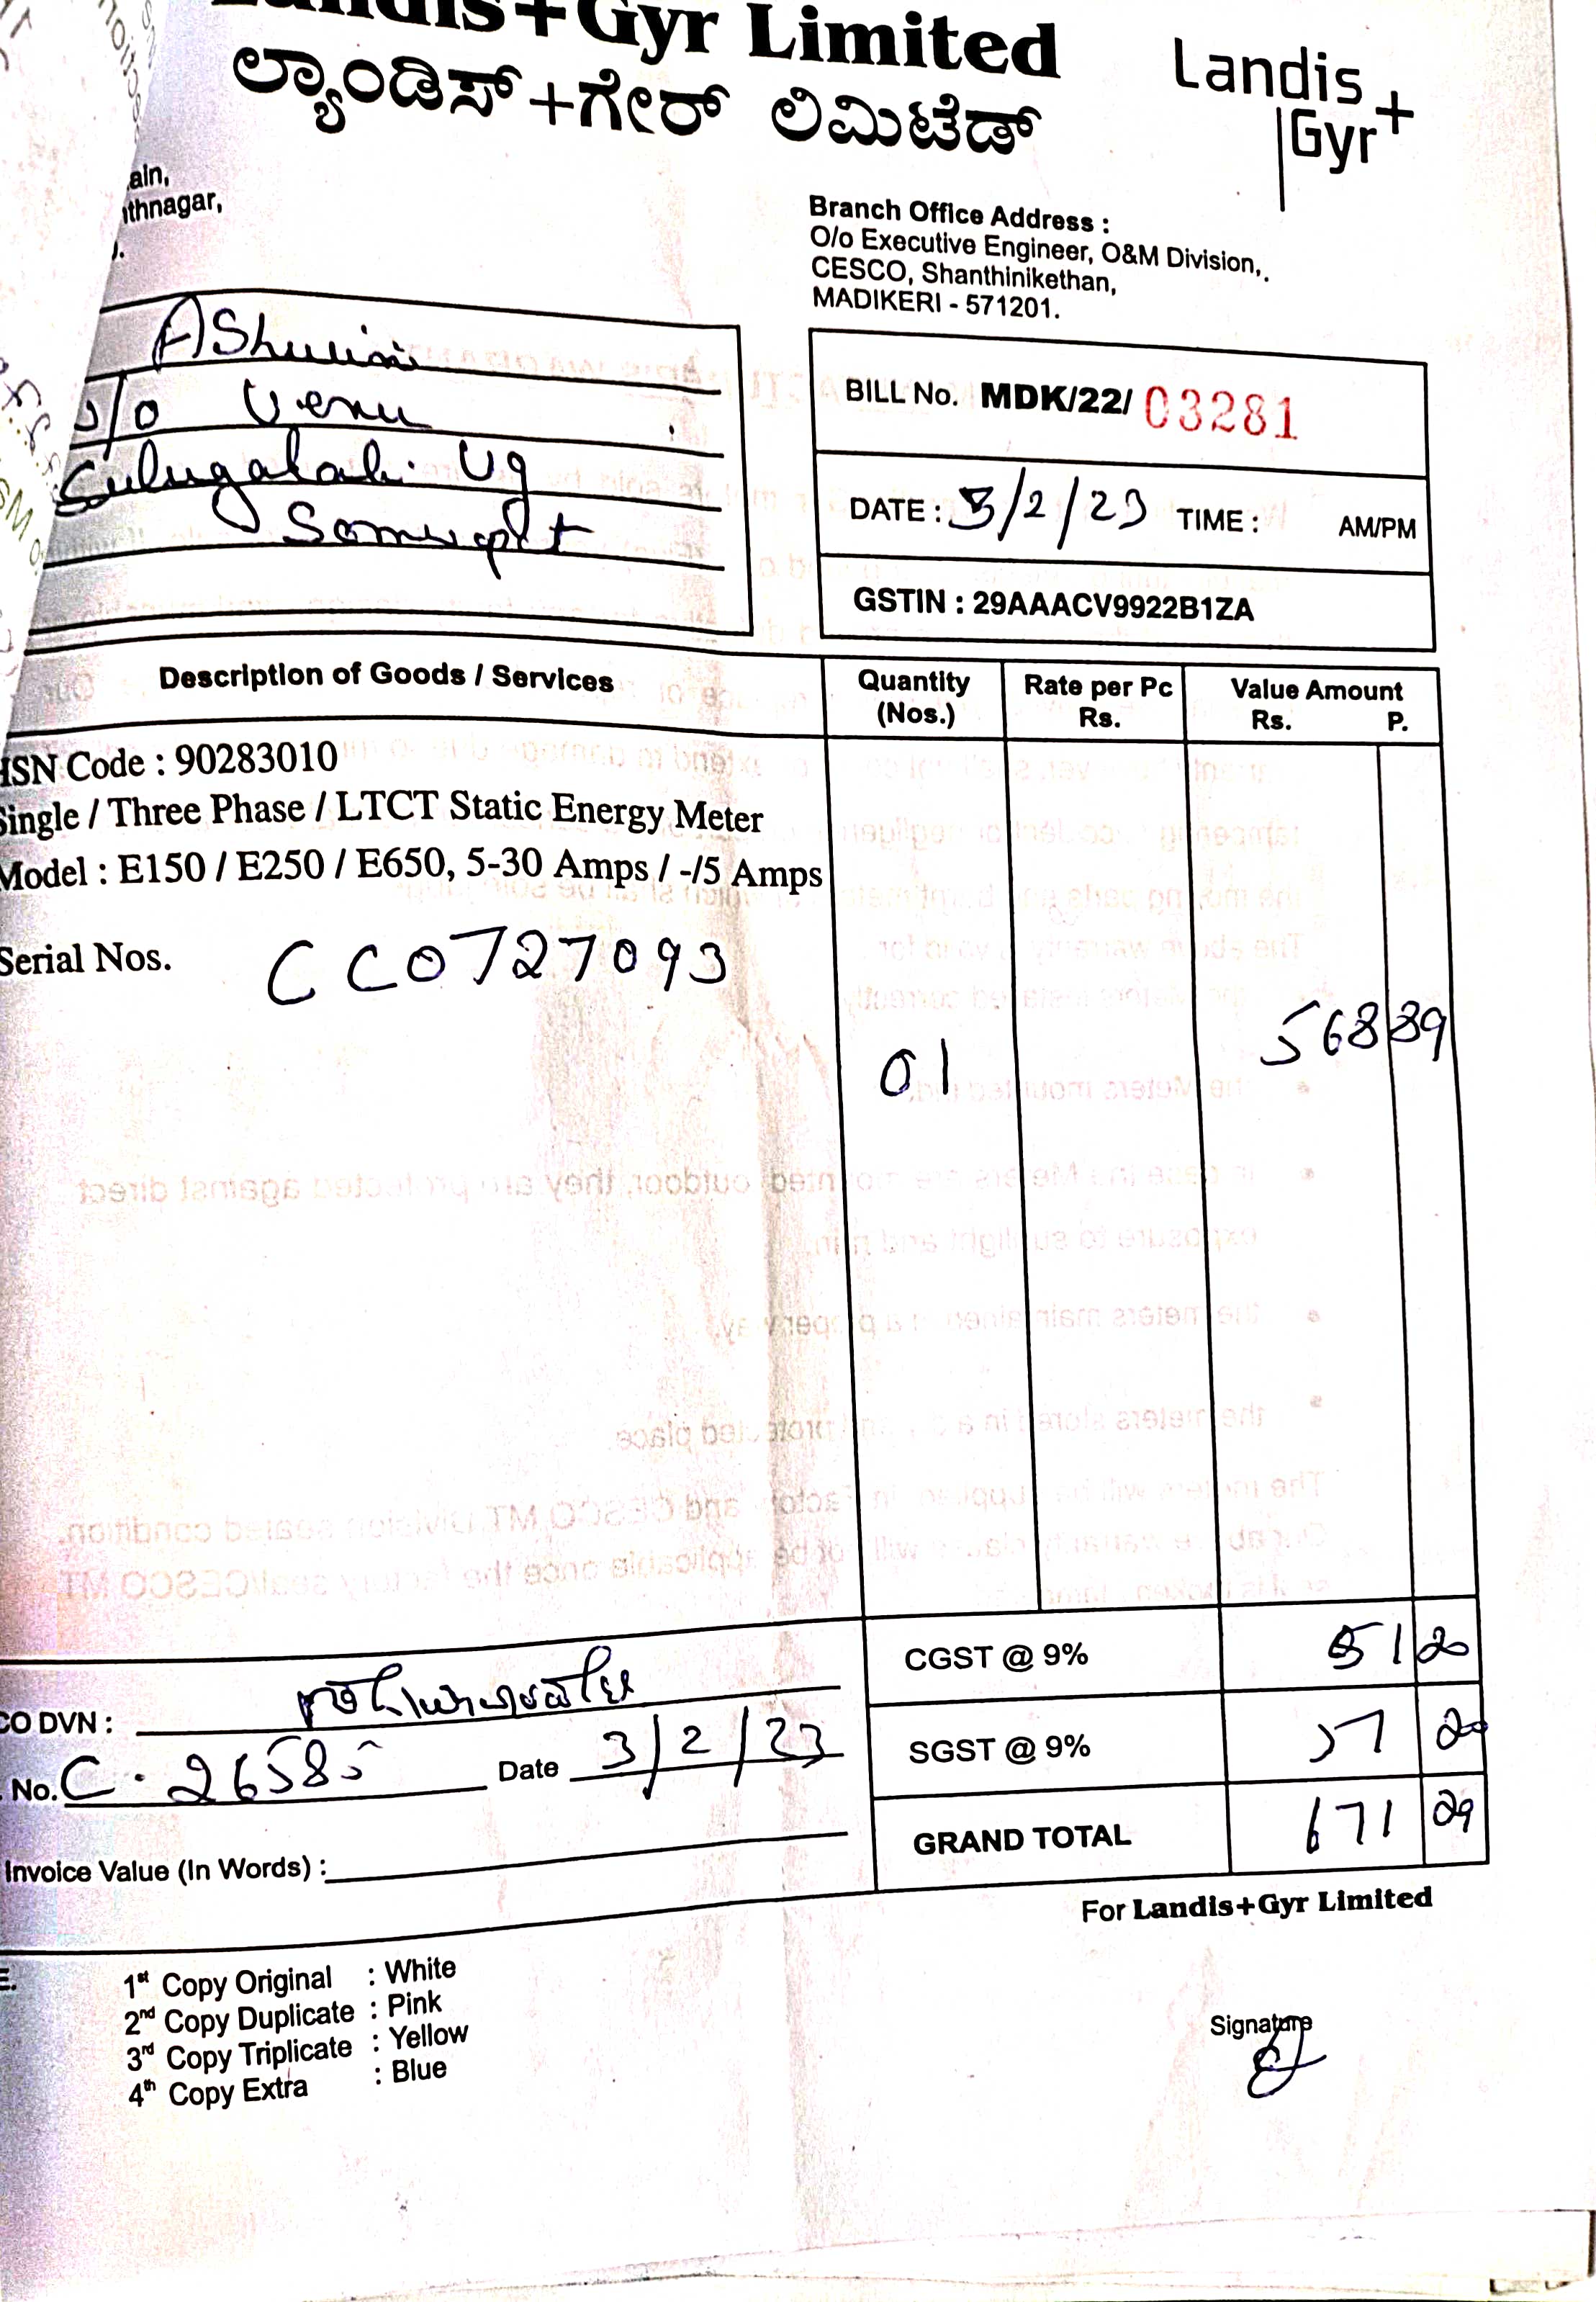 Landis+Gyr Limited
ಲ್ಯಾಂಡಿಸ್+ಗೇರ್ ಲಿಮಿಟೆಡ್
Landis
Gyr+
ain,
ithnagar,
Branch Office Address :
O/o Executive Engineer, O&M Division,.
CESCO, Shanthinikethan,
MADIKERI - 571201.
Ashwini
Venu
BILL No. MDK/22/ 03281
DATE : 3/2/23 TIME : AM/PM
GSTIN : 29AAACV9922B1ZA
Description of Goods / Services
Quantity (Nos.)
Rate per Pc Rs.
Value Amount Rs. P.
HSN Code : 90283010
Single / Three Phase / LTCT Static Energy Meter
Model : E150 / E250 / E650, 5-30 Amps / -/5 Amps
Serial Nos. CC0727093
01 568 89
CGST @ 9% 51 20
CO DVN :
SGST @ 9% 51 20
No. Date 3/2/23
GRAND TOTAL 671 29
Invoice Value (In Words) :
For Landis+Gyr Limited
E.
1st Copy Original : White
2nd Copy Duplicate : Pink
3rd Copy Triplicate : Yellow
4th Copy Extra : Blue
Signature